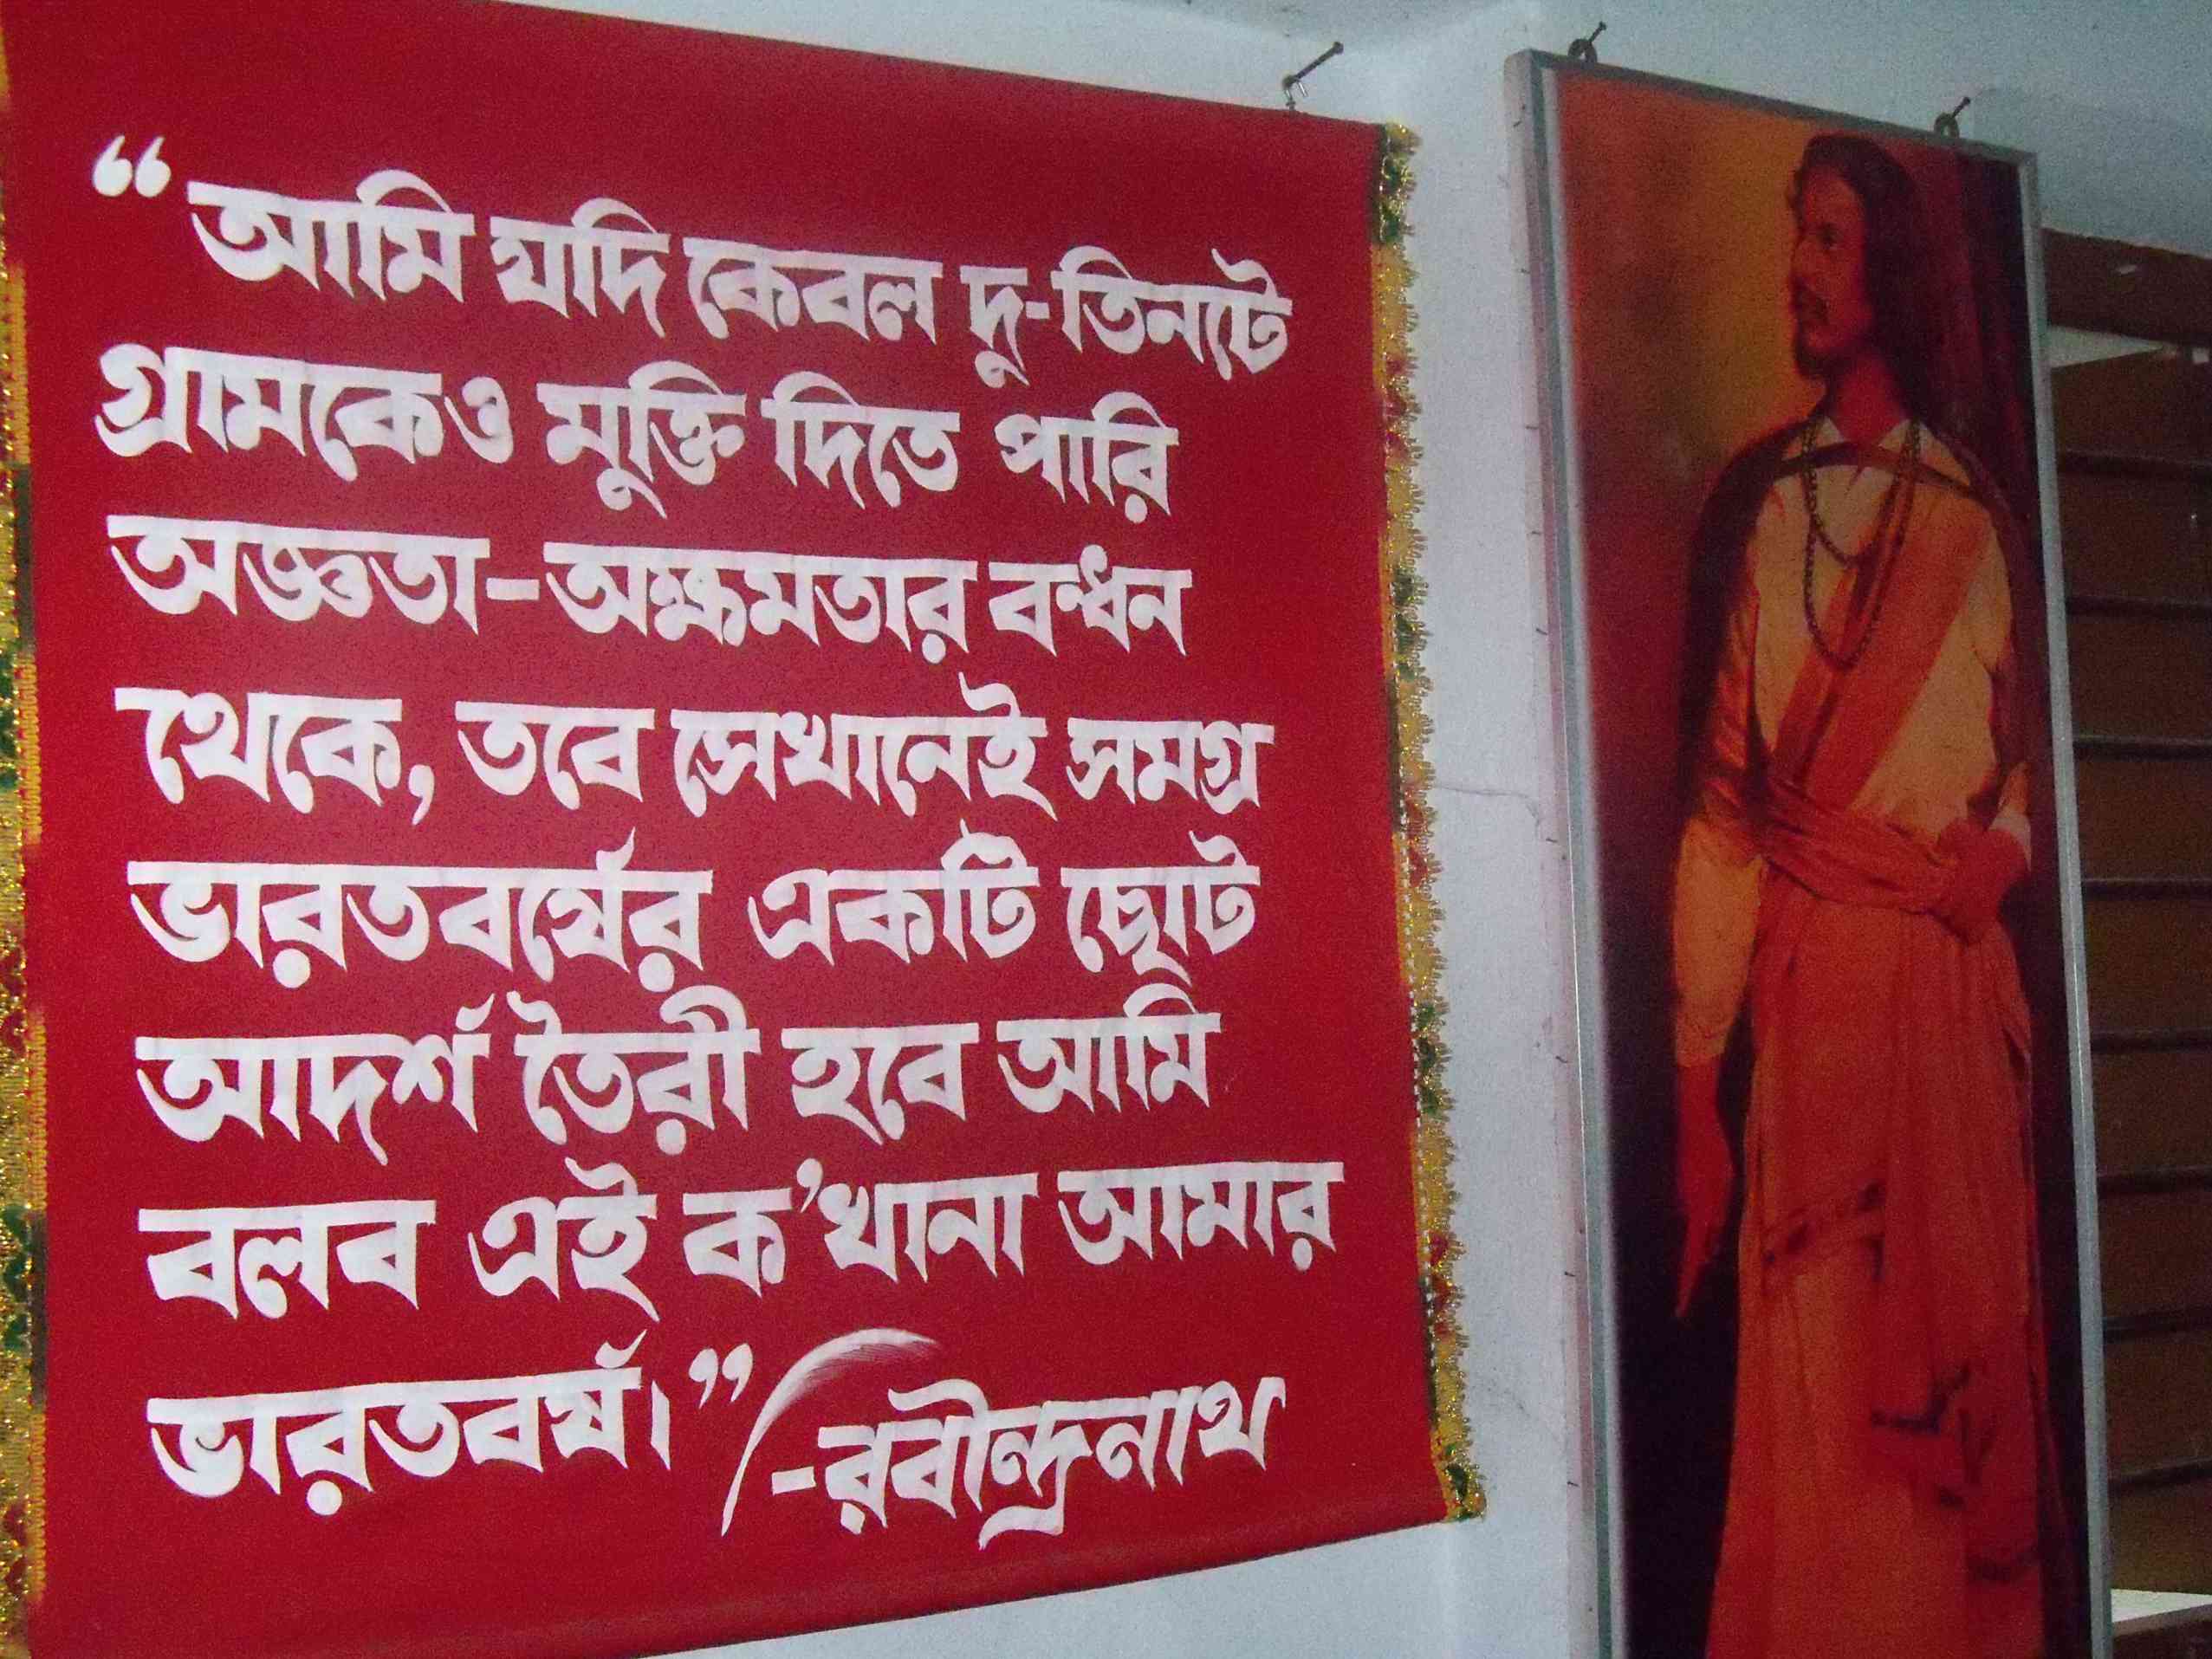 “আমি যদি কেবল দু-তিনটে
গ্রামকেও মুক্তি দিতে পারি
অজ্ঞতা-অক্ষমতার বন্ধন
থেকে, তবে সেখানেই সমগ্র
ভারতবর্ষের একটি ছোট
আদর্শ তৈরী হবে আমি
বলব এই ক'খানা আমার
ভারতবর্ষ।”
-রবীন্দ্রনাথ